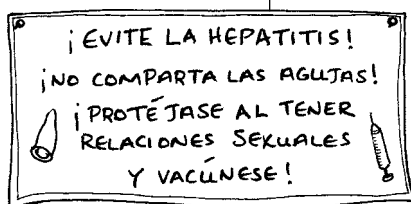 ¡EVITE LA HEPATITIS!
¡NO COMPARTA LAS AGUJAS!
¡PROTÉJASE AL TENER
RELACIONES SEXUALES
Y VACÚNESE!